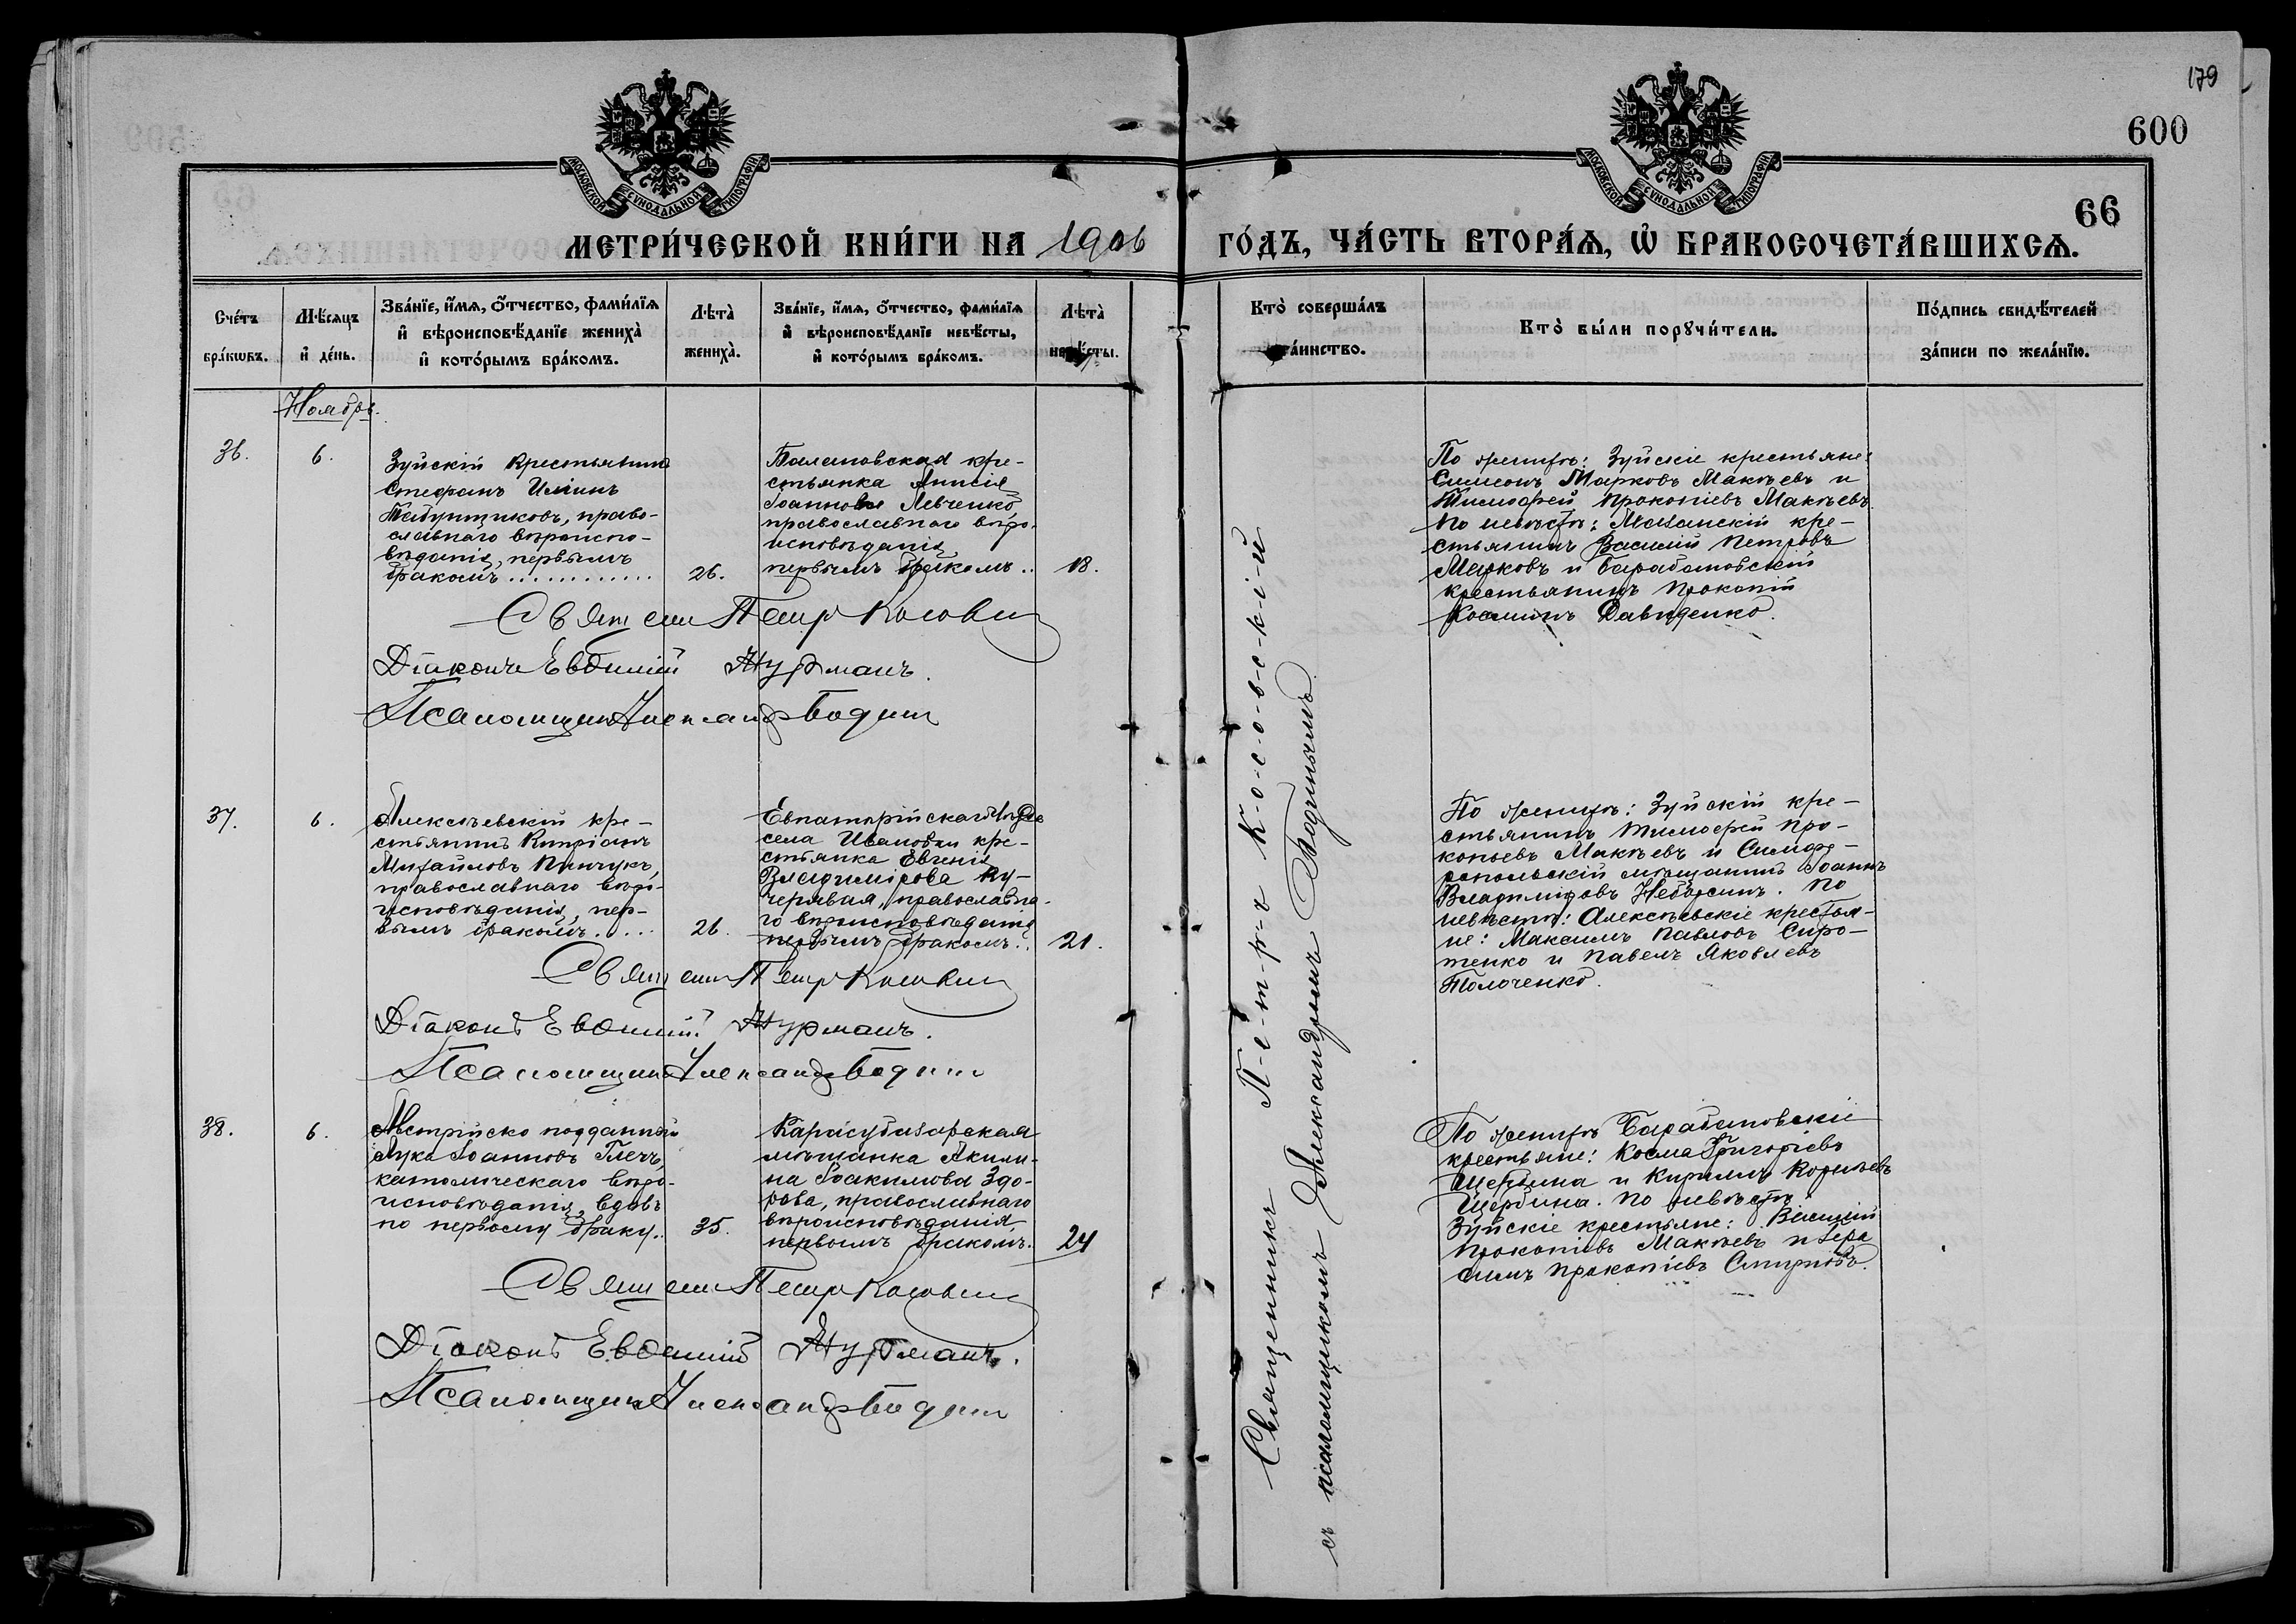 179
600
66
МОСКОВСКОЙ СѴНОДАЛЬНОЙ ТИПОГРАФІИ
МОСКОВСКОЙ СѴНОДАЛЬНОЙ ТИПОГРАФІИ
МЕТРИ́ЧЕСКОЙ КНИ́ГИ НА 1906 ГО́ДЪ, ЧА́СТЬ ВТОРА́Ѧ, Ѡ҆ БРАКОСОЧЕТА́ВШИХСѦ.
Сче́тъ
бра́кѡвъ.
Мѣ́сяцъ
и҆ де́нь.
Зва́нїе, и҆́мѧ, ѻ҆́тчество, фами́лїѧ
и҆ вѣроисповѣ́данїе жениха̀
и҆ кото́рымъ бра́комъ.
Лѣта̀
жениха̀.
Зва́нїе, и҆́мѧ, ѻ҆́тчество, фами́лїѧ
и҆ вѣроисповѣ́данїе невѣ́сты,
и҆ кото́рымъ бра́комъ.
Лѣта̀
невѣ́сты.
Кто̀ соверша́лъ
та́инство.
Кто̀ бы́ли порꙋчи́тели.
По́дпись свидѣ́телей
за́писи по жела́нїю.
Ноябрь.
36.
6.
Зуйскій крестьянинъ
Стефанъ Илiинъ
Табунщиковъ, право-
славнаго вѣроиспо-
вѣданія, первымъ
бракомъ............
26.
кре-
стьянка Анисія
Іоаннова Левченко,
православнаго вѣро-
исповѣданія,
первымъ бракомъ..
18.
По женихѣ: Зуйскіе крестьяне:
Симеонъ Марковъ Макѣевъ и
Тимофей Прокопіевъ Макѣевъ.
По невѣстѣ: Мазанскій кре-
стьянинъ Василій Петровъ
Марковъ и Барабановскій
крестьянинъ Прокопій
Косминъ Давиденко.
Священникъ Петръ Косовскій
Діаконъ Евѳимій Журманъ.
Псаломщикъ Александръ Бодинъ
37.
6.
Алексѣевскій кре-
стьянинъ Кипріанъ
Михайловъ Пинчукъ,
православнаго вѣро-
исповѣданія, пер-
вымъ бракомъ....
26.
Евпаторійскаго уѣзда
села Ивановки кре-
стьянка Евгенія
Владимірова Ку-
черявая, православна-
го вѣроисповѣданія
первымъ бракомъ..
21.
По женихѣ: Зуйскій кре-
стьянинъ Тимофей Про-
копьевъ Макѣевъ и Симфе-
ропольскій мѣщанинъ Іоаннъ
Владиміровъ По
невѣстѣ: Алексѣевскіе крестья-
не: Максимъ Павловъ Сиро-
тенко и Павелъ Яковлевъ
Толоченко.
Священникъ Петръ Косовскій
Діаконъ Евѳимій Журманъ.
Псаломщикъ Александръ Бодинъ
38.
6.
Австрійско подданный
Лука Іоанновъ Глечъ,
католическаго вѣро-
исповѣданія, вдовъ
по первому браку..
35.
Карасубазарская
мѣщанка Акили-
на Іоакимова Здо-
рова, православнаго
вѣроисповѣданія,
первымъ бракомъ.
24
По женихѣ Барабановскіе
крестьяне: Косма Григорьевъ
Щербина и Кириллъ Корнѣевъ
Щербина. По невѣстѣ:
Зуйскіе крестьяне: Василій
Прокопіевъ Макѣевъ и Гера
симъ Прокопіевъ Смирновъ.
Священникъ Петръ Косовскій
Діаконъ Евѳимій Журманъ.
Псаломщикъ Александръ Бодинъ
Священникъ П-е-т-р-ъ К-о-с-о-в-с-к-і-й
съ псаломщикомъ Александромъ Бодинымъ.